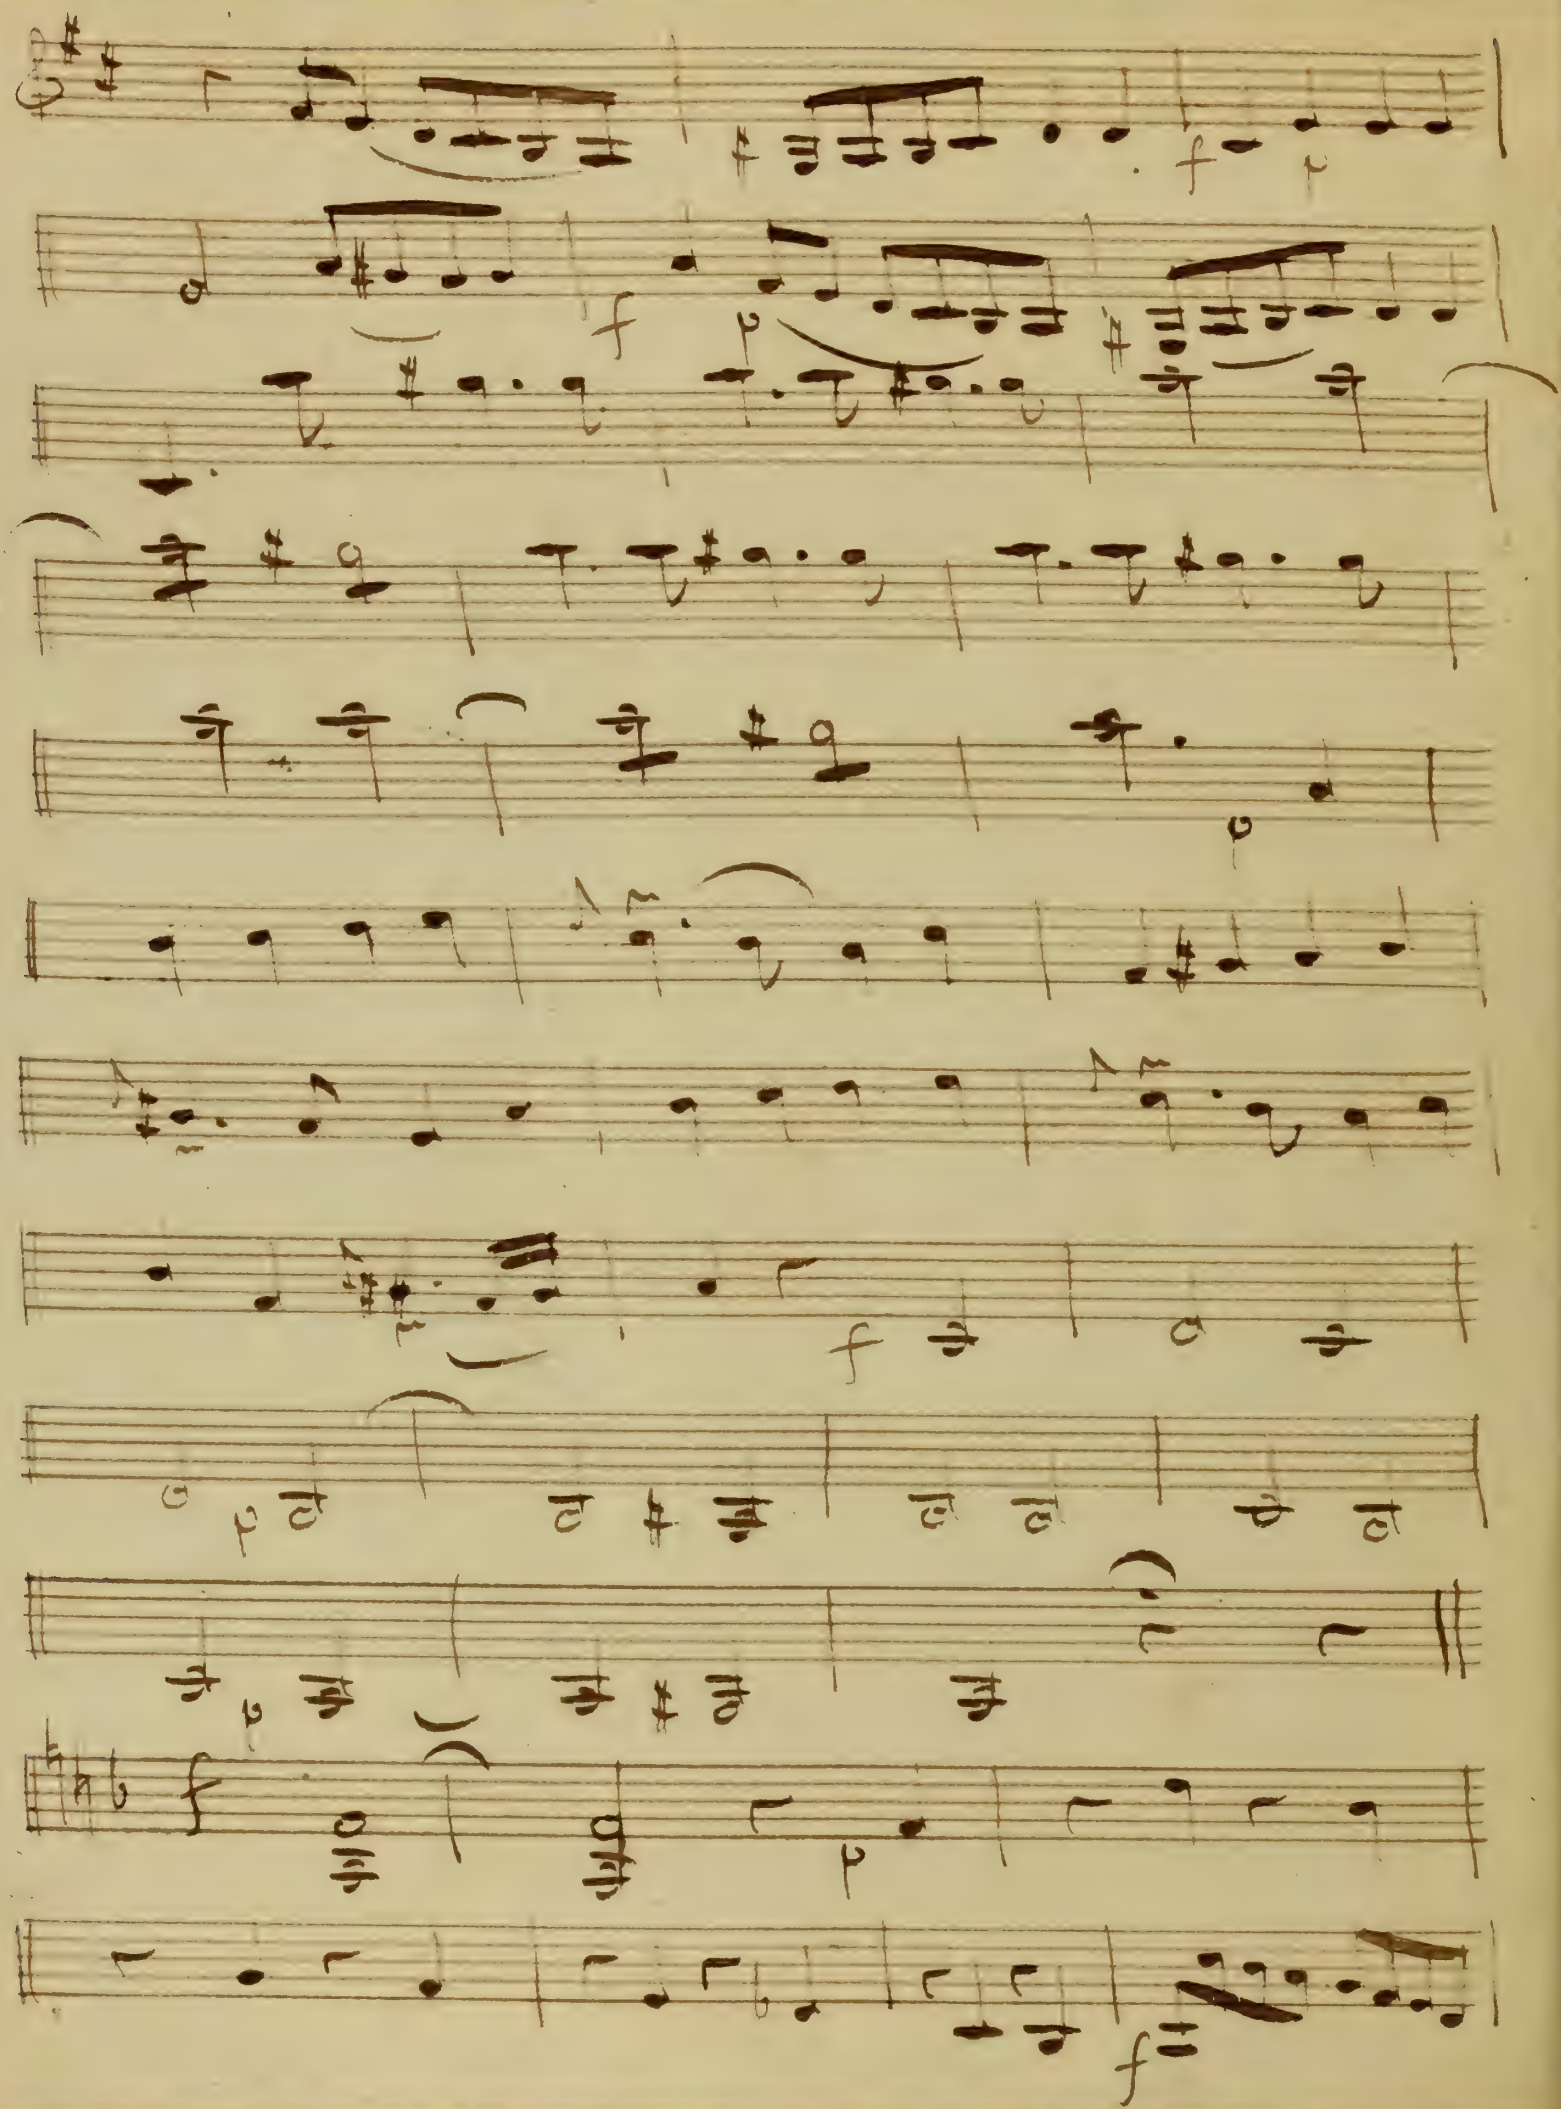 f p
f p
p
f
p
p
f p
f